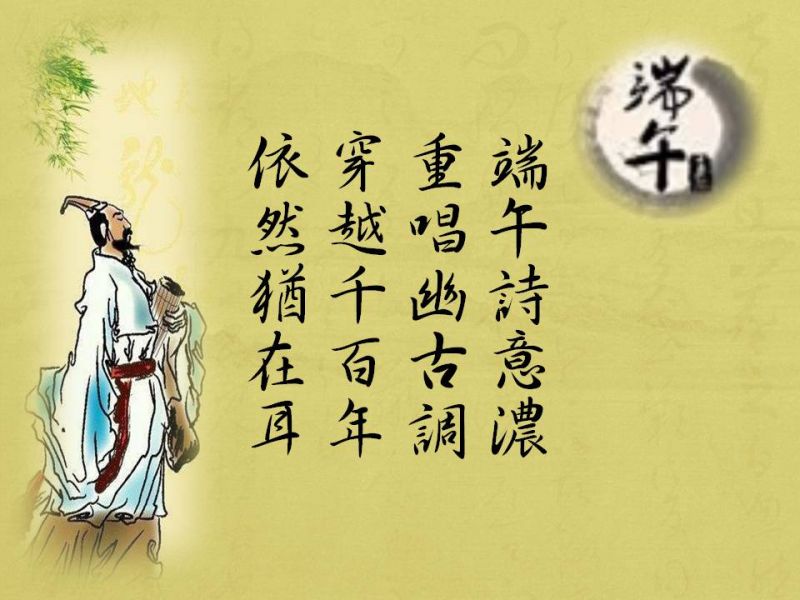 端午
端午詩意濃
重唱幽古調
穿越千百年
依然猶在耳